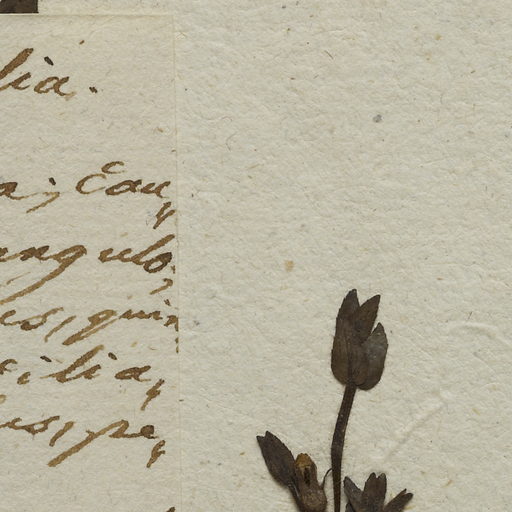 lia.
a; Cau,
angulo,
es, quin
cilia,
us, pe,